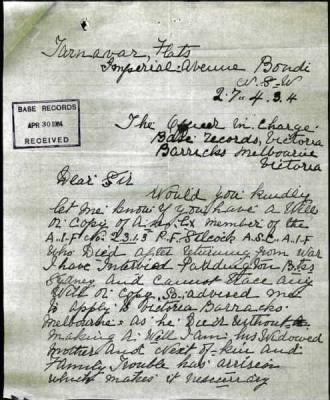 Tarnavar, Flats
Imperial Avenue Bondi
N.S.W
27.4.34
BASE RECORDS
APR 30 1934
RECEIVED
The Officer in Charge
Base records, Victoria
Barracks Melbourne
Victoria
Dear Sir
Would you kindly
let me know if you have a Will
or Copy of Ex member of the
A.I.F No 2313 R.F. Silcock A.S.C. A.I.F
who Died after returning from war
I have Enquired Paddington Bks
Sydney and cannot trace any
Will or Copy, So advised me
to apply to Victoria Barracks
Melbourne as he Died without
making a Will I am his Widowed
Mother and Next of Kin and
Family Trouble has arrisen
which makes it necessary